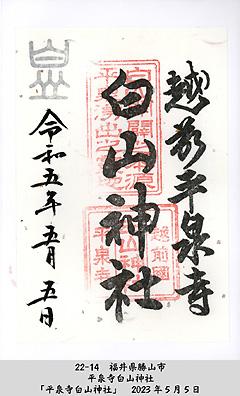 越前平泉寺
白山神社
令和五年五月五日
22-14 福井県勝山市
平泉寺白山神社
「平泉寺白山神社」 2023年5月5日